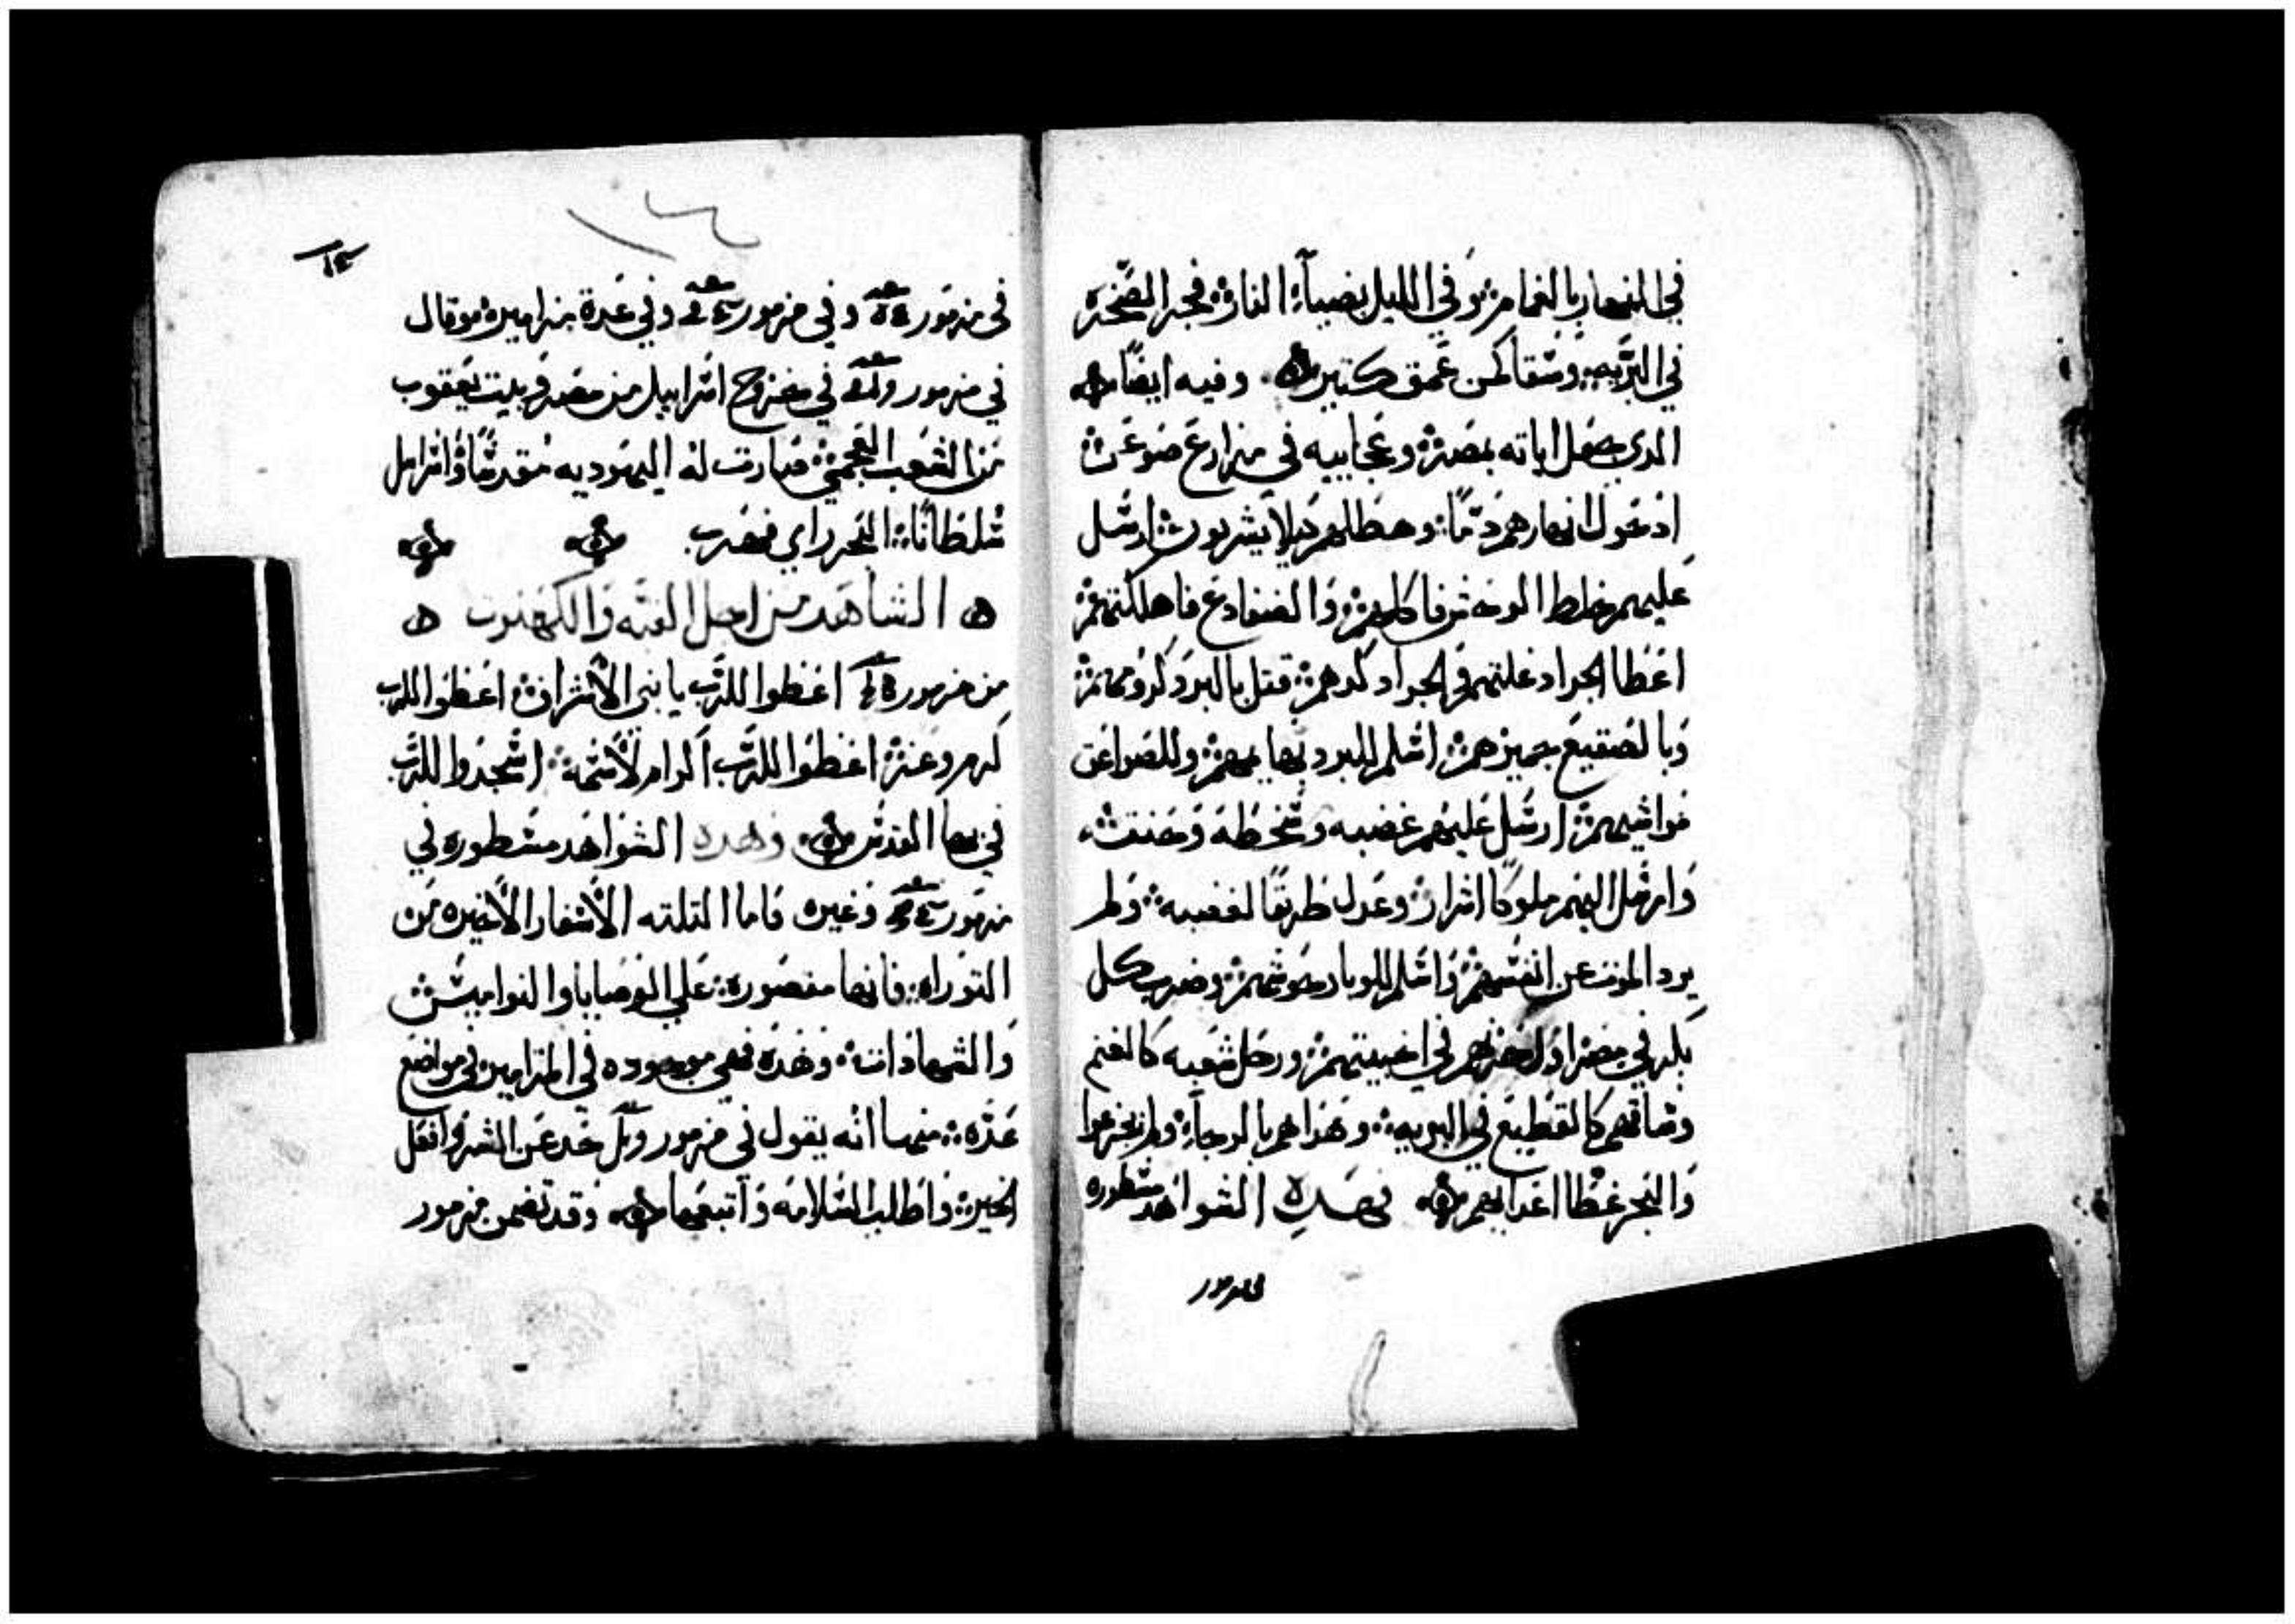 في النهار بالغمام؞ وفي الليل بضيآء النار؞ فجر الصخره
في البريه؞ وسقاهم من عمق كتير؞ وفيه ايضًا
الدي جعل اياته بمصر؞ وعجاييه في مزارع صوعن؞
اد حول انهارهم دمًا؞ وهطلهم كيلا يشربون؞ ارسل
عليهم خلط الوحوش فاكلهم؞ والضفادع فاهلكتهم؞
اعطا الجراد غلتهم والجراد كدهم؞ قتل بالبرد كرومهم؞
وبالصقيع جميزهم؞ اسلم للبرد بهايمهم؞ وللصواعق
مواشيهم؞ ارسل عليهم غضبه وسخطه وحنقه؞
وارسل اليهم ملوكًا اشرار؞ وعدل طريقًا لغضبه؞ ولم
يرد الموت عن انفسهم؞ واسلم للوبا دحوشهم؞ وضرب كل
بكر في مصر اول في اخبيتهم؞ ورحل شعبه كالغنم
وساقهم كالقطيع في البريه؞ وهداهم بالرجآء؞ ولم يجزعوا
والبحر غطا اعدايهم؞ فهده الشواهد مسطوره
في مزمور
١٤
١٤
في مزمور وفي مزمور وفي عدة مزامير؞ وقال
في مزمور في مخروج اسراييل من مصر وبيت يعقوب
من الشعب العجمي؞ صارت له اليهوديه مقدسًا واسراييل
سلطانًا؞ البحر راي فهرب
الشاهد من اجل القبه والكهنوت
من مزمور اعطوا للرب يا بني الاشراف؞ اعطوا للرب
كرم وعز؞ اعطوا للرب اكرام لاسمه؞ اسجدوا للرب
في بهآ القدس؞ وهده الشواهد مسطوره في
مزمور وغيره فاما التلته الاسفار الاخيره من
التوراه؞ فانها مقصوره؞ علي الوصايا والنواميس؞
والشهادات؞ وهده فهي موجوده في المزامير في مواضع
عده؞ منها انه يقول في مزمور حد عن الشر وافعل
الخير؞ واطلب السلامه واتبعها؞ وقد تضمن مزمور